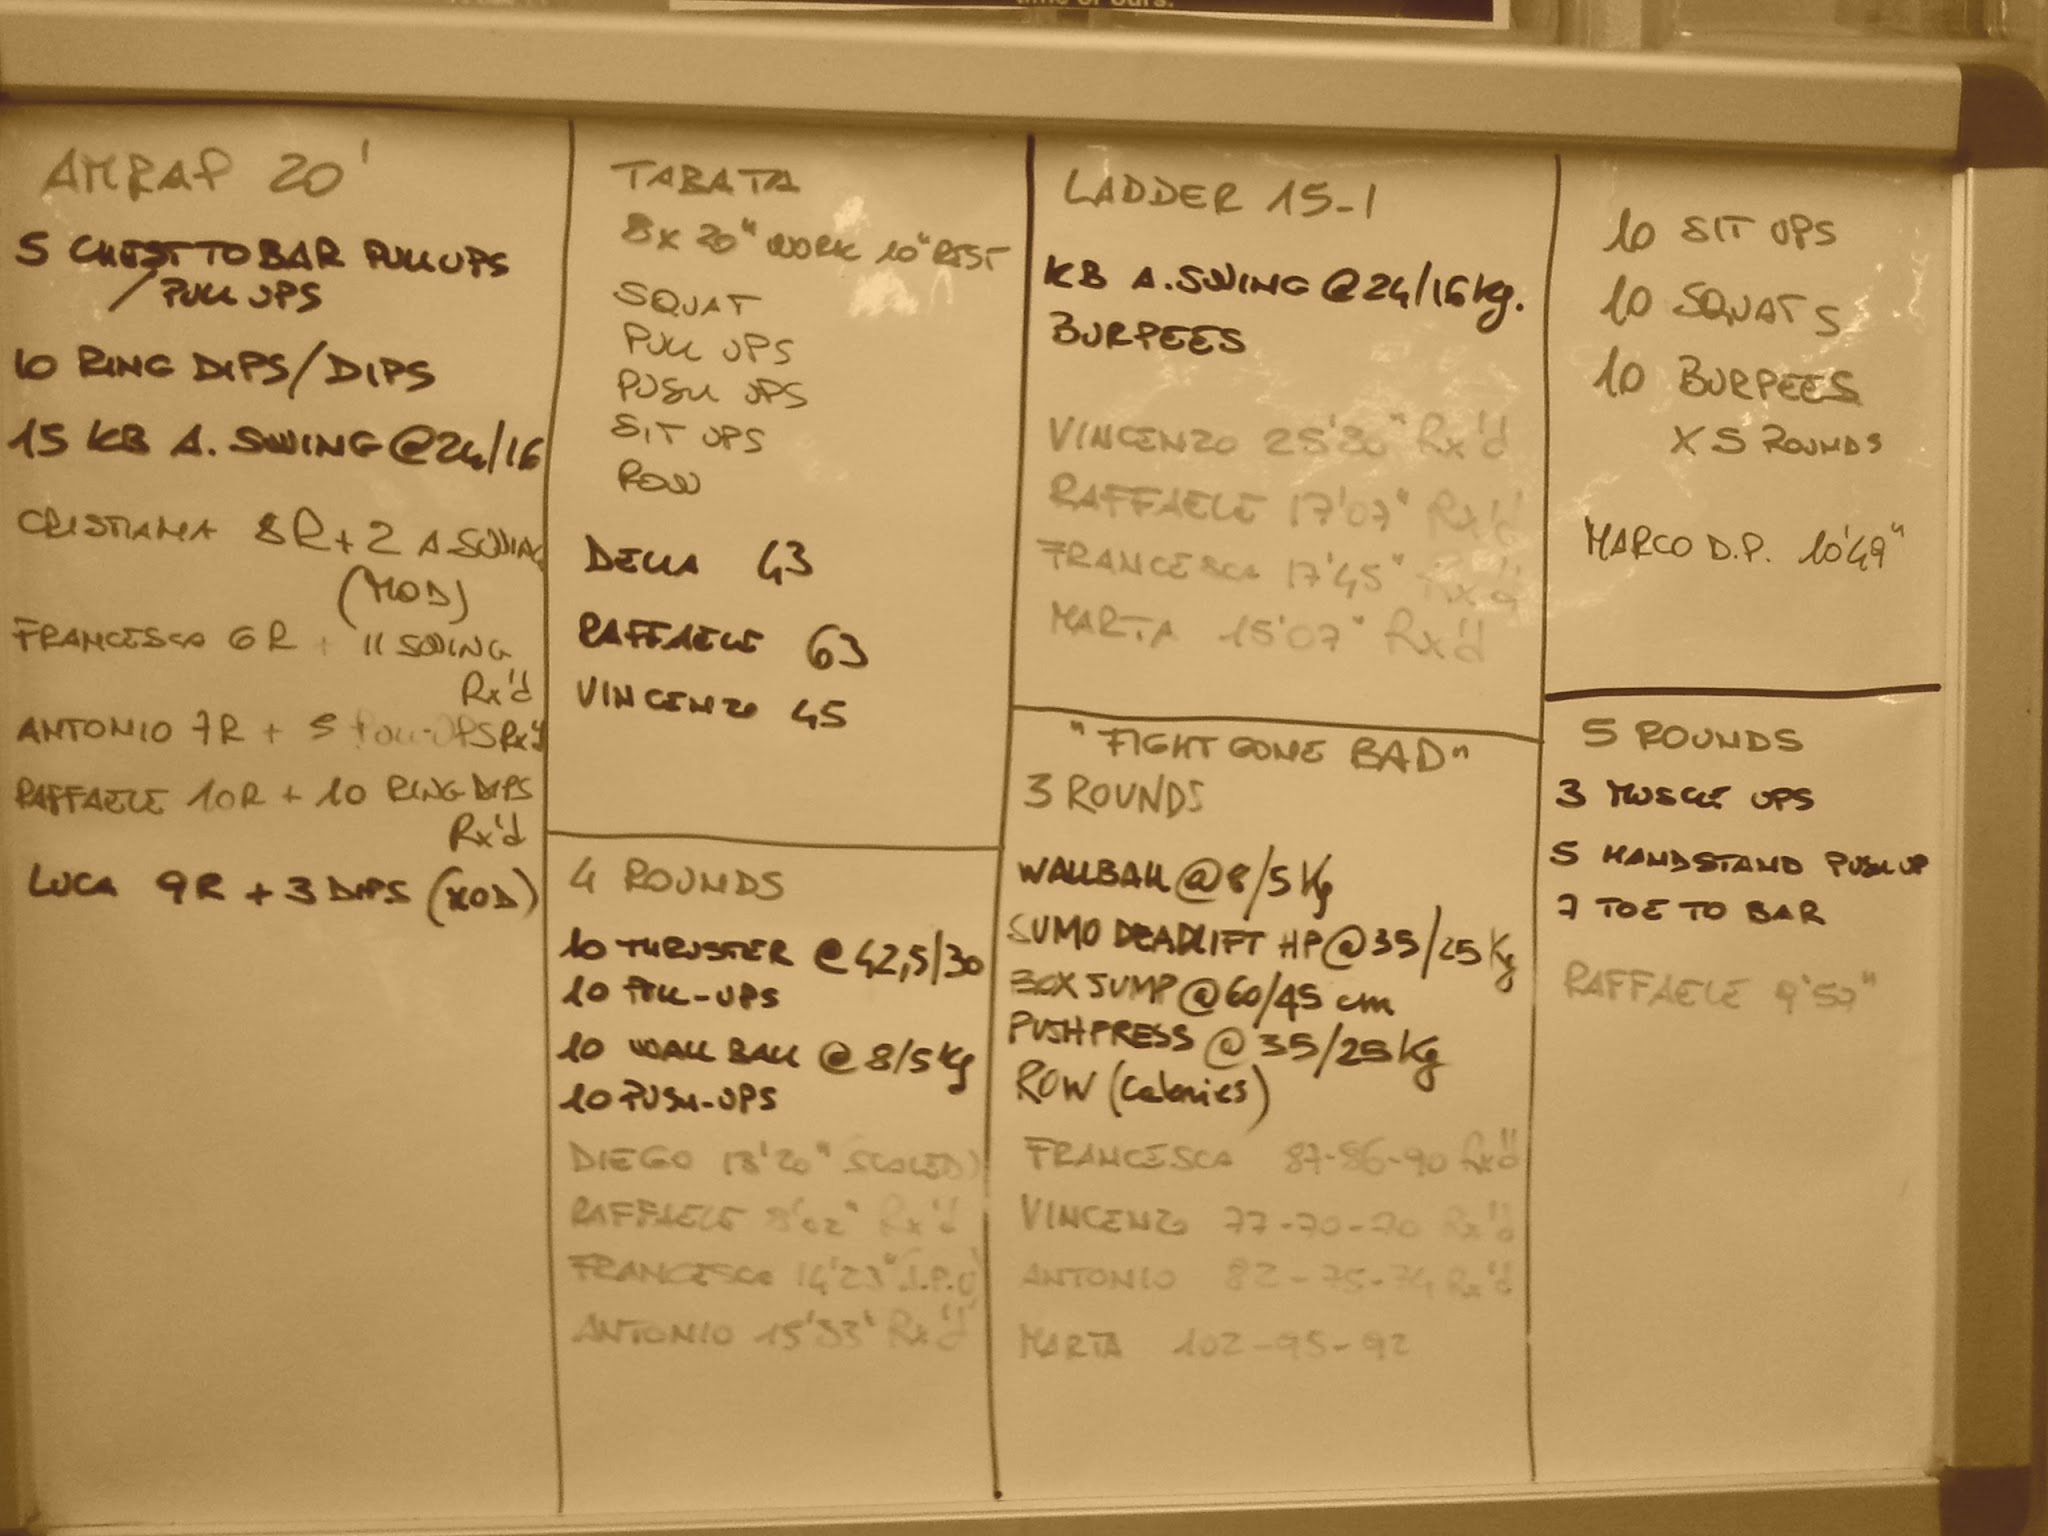 time of ours.
AMRAP 20'
5 CHEST TO BAR PULL UPS
/PULL UPS
10 RING DIPS/DIPS
15 KB A. SWING @24/16
CRISTIANA 8R+2 A.SWING
(MOD)
FRANCESCO 6R + 11 SWING
Rx'd
ANTONIO 7R + 5 PULL-UPS Rx'd
RAFFAELE 10R + 10 RING DIPS
Rx'd
LUCA 9R + 3 DIPS (MOD)
TABATA
8x 20" WORK 10" REST
SQUAT
PULL UPS
PUSH UPS
SIT UPS
ROW
DELLA 43
RAFFAELE 63
VINCENZO 45
4 ROUNDS
10 THRUSTER @42,5/30
10 PULL-UPS
10 WALL BALL @8/5Kg
10 PUSH-UPS
DIEGO 13'20" SCALED)
RAFFAELE 8'02" Rx'd
FRANCESCO 14'23"
ANTONIO 15'33' Rx'd
LADDER 15-1
KB A.SWING @24/16Kg.
BURPEES
VINCENZO 25'20" Rx'd
RAFFAELE 17'07" Rx'd
FRANCESCA 17'45" Rx'd
MARTA 15'07" Rx'd
"FIGHT GONE BAD"
3 ROUNDS
WALLBALL @8/5Kg
SUMO DEADLIFT HP@35/25Kg
BOX JUMP @60/45 cm
PUSHPRESS @35/25Kg
ROW (Calories)
FRANCESCA 87-86-90 Rx'd
VINCENZO 77-70-70 Rx'd
ANTONIO 82-75-74 Rx'd
MARTA 102-95-92
10 SIT UPS
10 SQUATS
10 BURPEES
X 5 ROUNDS
MARCO D.P. 10'49"
5 ROUNDS
3 MUSCLE UPS
5 HANDSTAND PUSH UP
7 TOE TO BAR
RAFFAELE 9'57"